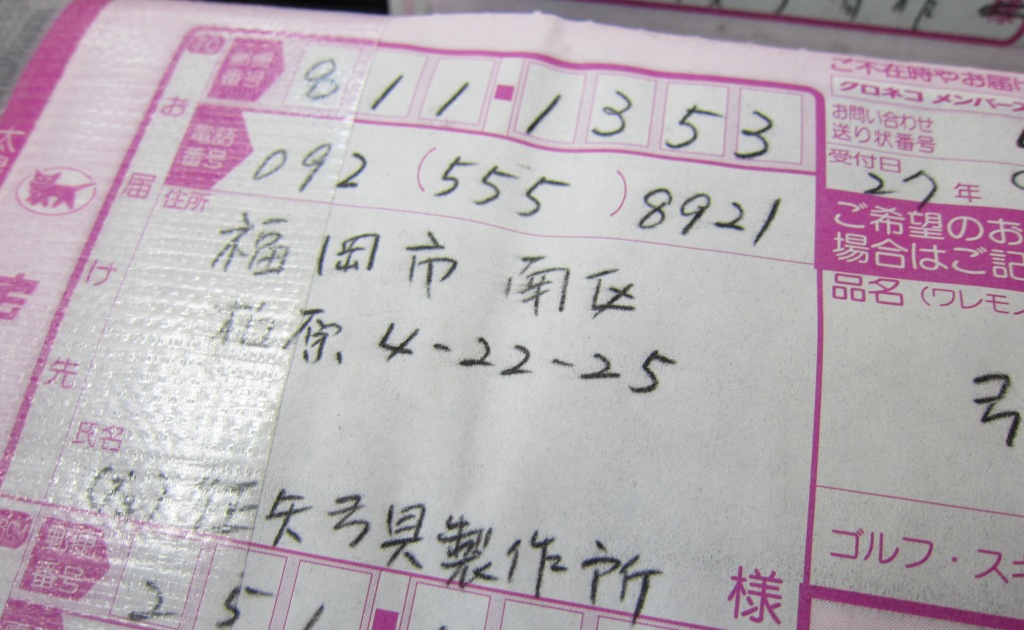 様
郵便番号 811-1353
電話番号 092 (555) 8921
お届け先
住所
福岡市 南区
柏原 4-22-25
氏名
(有)
矢弓具製作所
様
郵便番号
251
ご不在時やお届け
クロネコ メンバーズ
お問い合わせ
送り状番号
受付日
27年
ご希望のお
場合はご記
品名 (ワレモノ
弓
ゴルフ・スキ